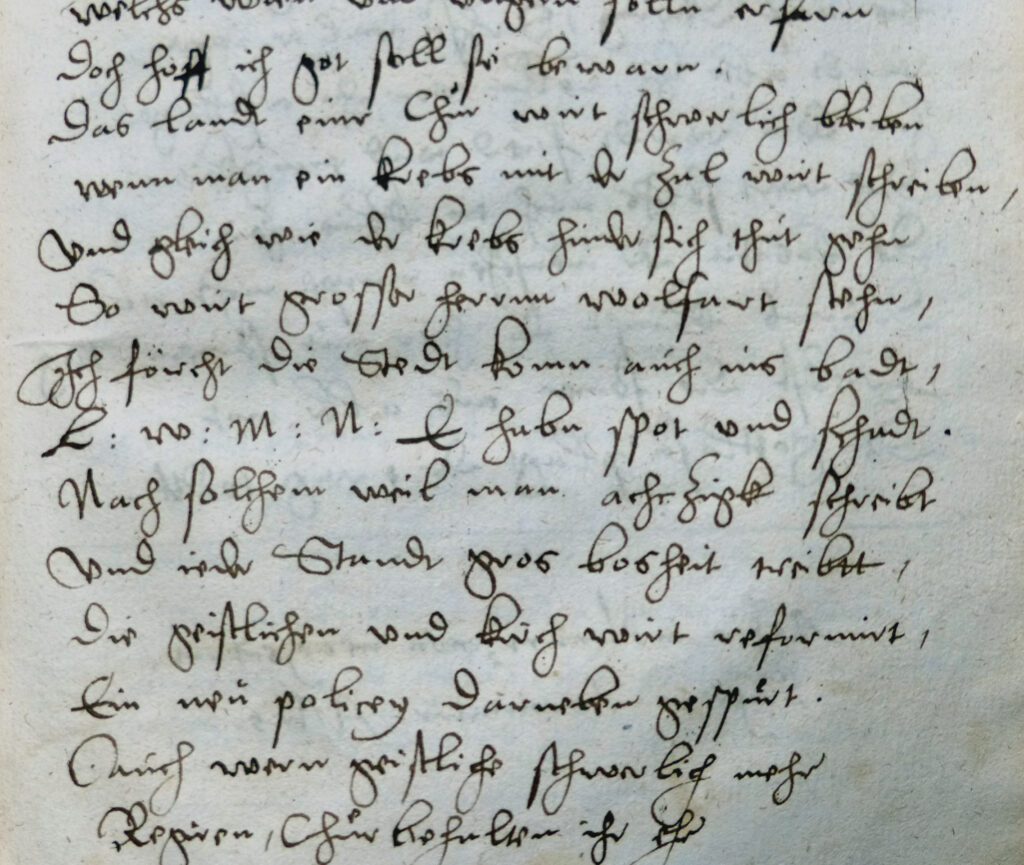 welchs wien und ungern solln erfarn
doch hoff ich got soll sie bewarn.
das landt eine Chur wirt schwerlich bleiben
wenn man ein krebs mit der Zal wirt schreiben,
Und gleich wie der krebs hindersich thut gehn
So wirt grosser herrnn wolfart stehn,
Ich förcht die Stedt komn auch ins badt,
L: W: M: N: E habn spot und schadt.
Nach solchem weil man achtzigk schreibt
Und ieder Standt gros bosheit treibtt,
die geistlichen und kirch wirt reformirt,
Ein neu policey darneben gespürt.
Auch wern geistliche schwerlich mehr
Regiren, Chur behalten ihr ehr